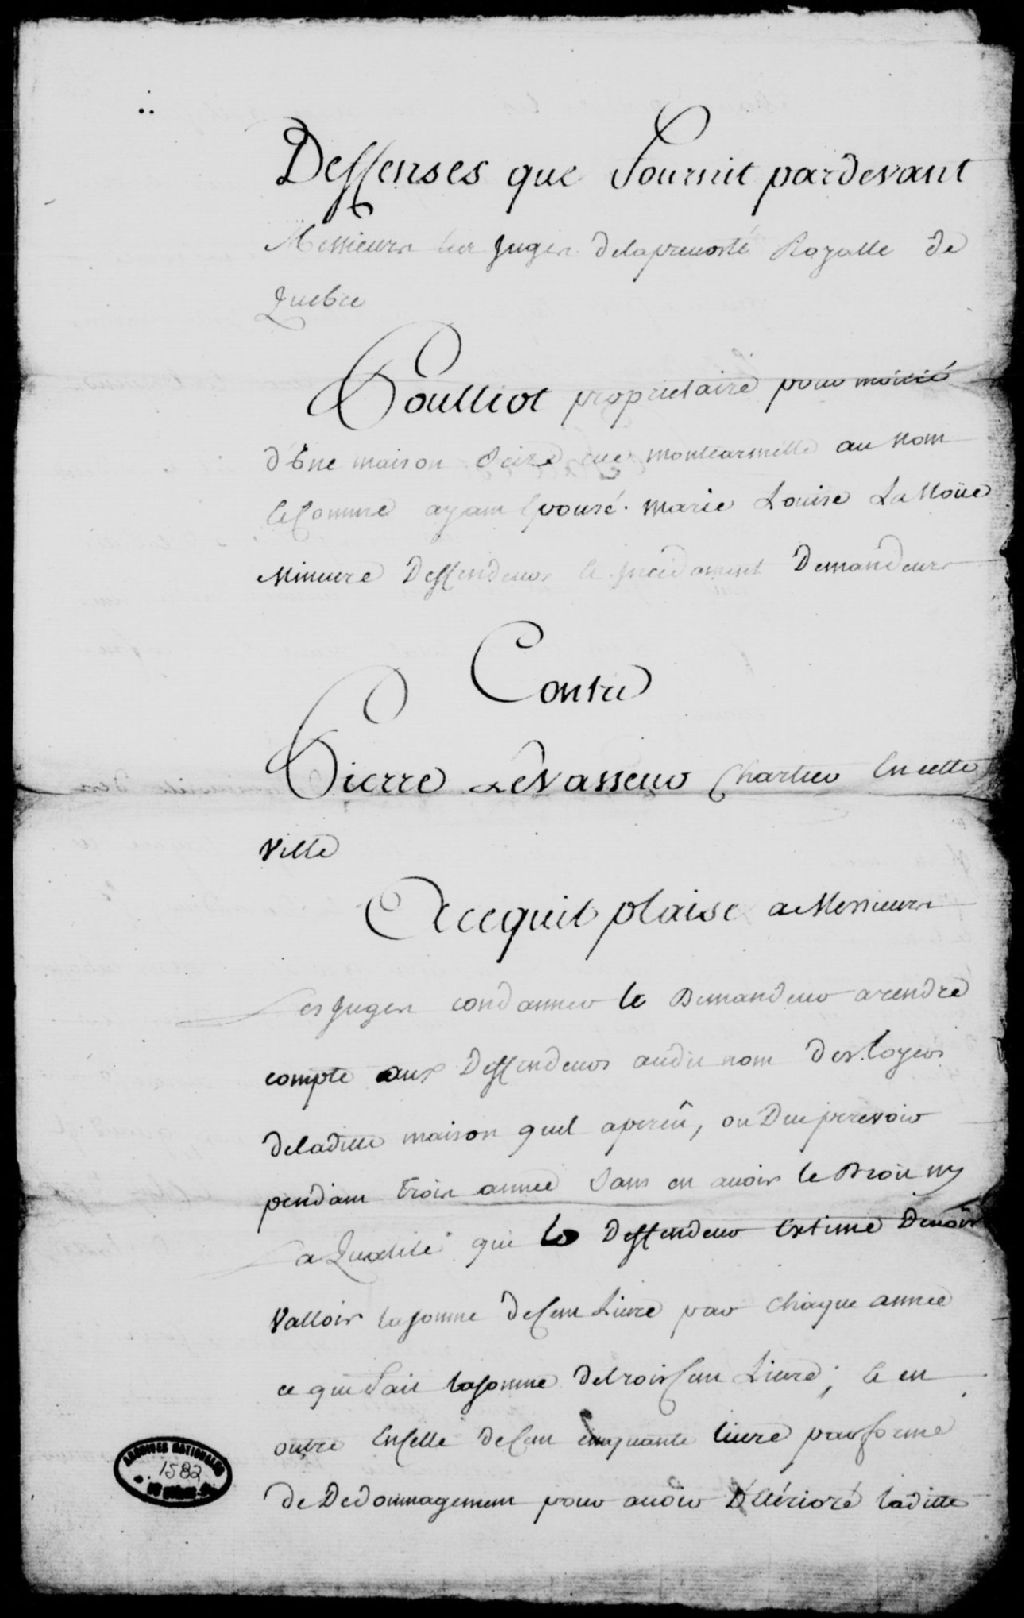 Deffenses que Fournit pardevant
Messieurs les Juges delaprevosté Royalle de
Quebec
Poulliot proprietaire pour moitié
d'Une maison size rue montcarmelle au nom
Et Comme ayant Epousé marie Louise LaNoüe
Mineure Deffendeur Et Incidament Demandeur
Contre
Pierre Levasseur Chartier En cette
Ville
Acequil plaise a Messieurs
Les Juges condamner le Demandeur arendre
compte aux Deffendeurs audit nom des Loyers
deladitte maison quil aperçû, ou Due percevoir
pendant trois année sans en avoir le Droit ny
La Qualité qui le Deffendeur Extime Devoir
Valloir lasomme deCent Livre par chaque année
ce qui Fait lasomme detrois Cent Livre; Et en
outre EnCelle deCent cinquante livre par forme
de Dedommagement pour avoir Déterioré laditte
ARCHIVES NATIONALES
1582